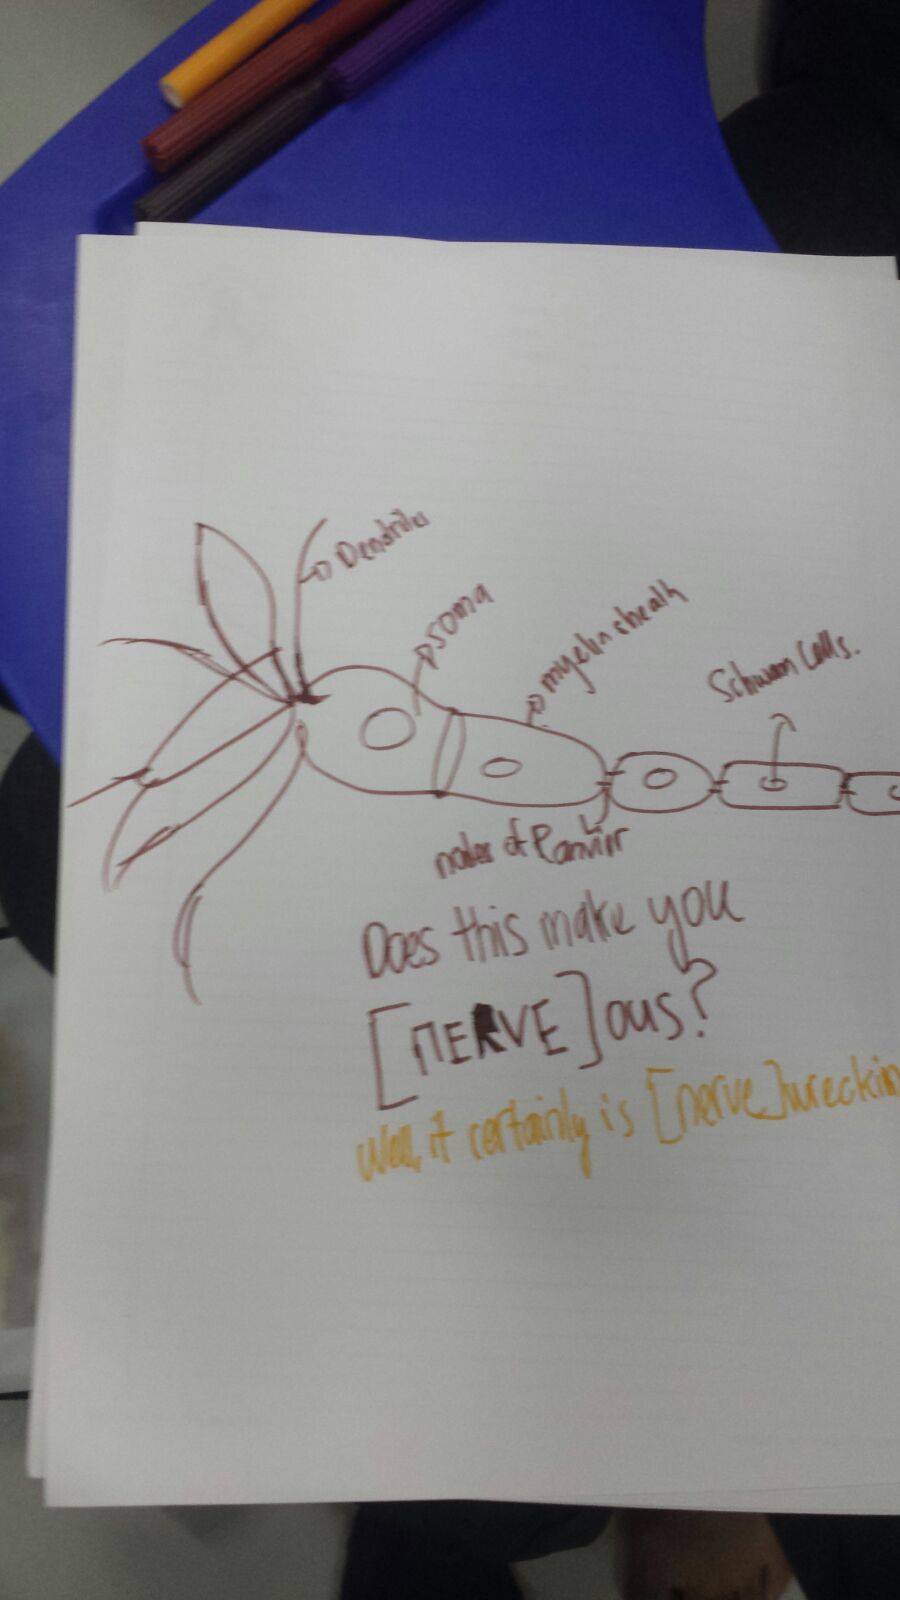 Dendrites
soma
myelin sheath
Schwan Cells.
nodes of Ranvirr
Does this make you
[NERVE]ous?
Well, it certainly is [nerve]wreckin